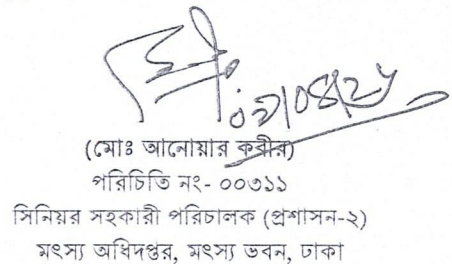 (মোঃ আনোয়ার কবীর)
পরিচিতি নং- ০০৩১১
সিনিয়র সহকারী পরিচালক (প্রশাসন-২)
মৎস্য অধিদপ্তর, মৎস্য ভবন, ঢাকা